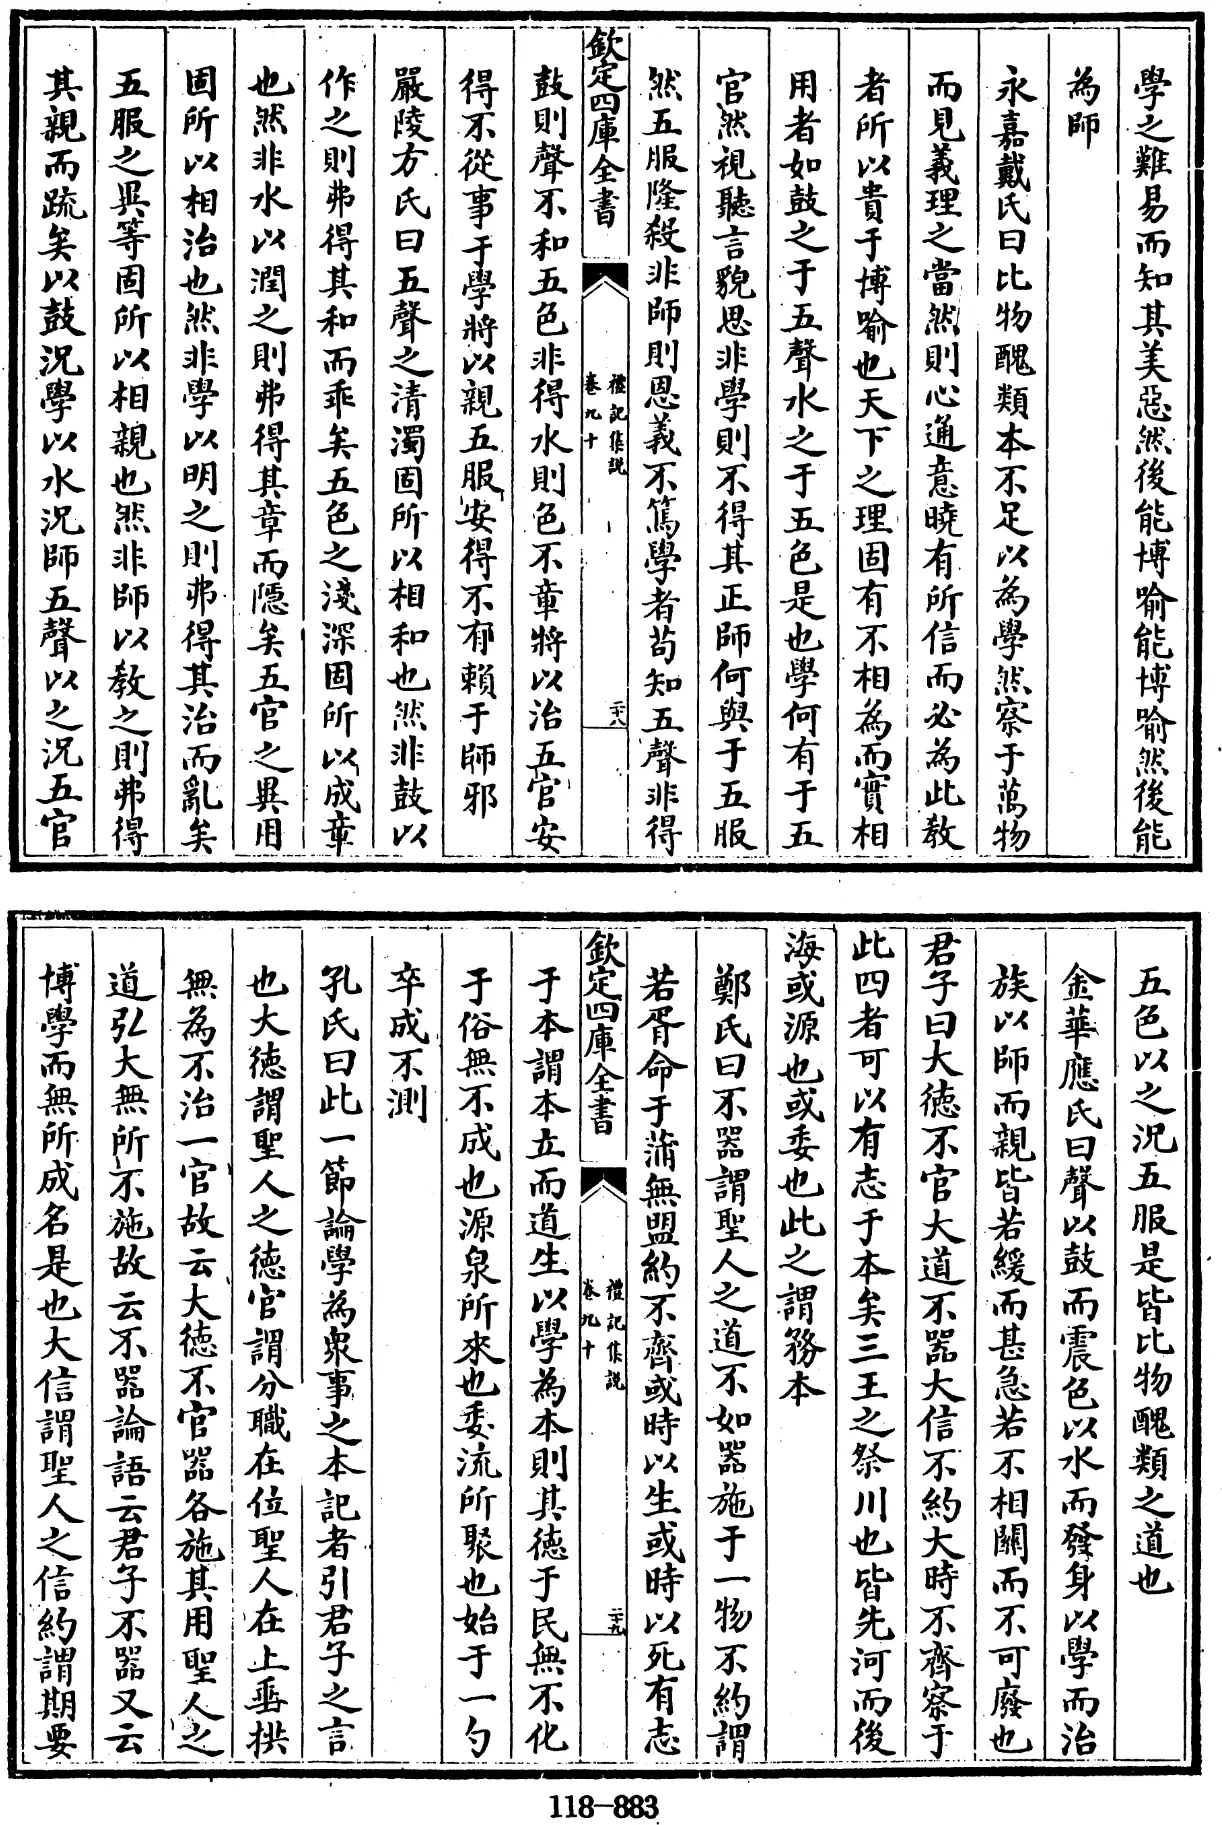 學之難易而知其美惡然後能博喻能博喻然後能
為師
永嘉戴氏曰比物醜類本不足以為學然察于萬物
而見義理之當然則心通意曉有所信而必為此教
者所以貴于博喻也天下之理固有不相為而實相
用者如鼓之于五聲水之于五色是也學何有于五
官然視聽言貌思非學則不得其正師何與于五服
然五服隆殺非師則恩義不篤學者苟知五聲非得
欽定四庫全書
禮記集說
卷九十
二十八
鼓則聲不和五色非得水則色不章將以治五官安
得不從事于學將以親五服安得不有賴于師邪
嚴陵方氏曰五聲之清濁固所以相和也然非鼓以
作之則弗得其和而乖矣五色之淺深固所以成章
也然非水以潤之則弗得其章而隱矣五官之異用
固所以相治也然非學以明之則弗得其治而亂矣
五服之異等固所以相親也然非師以教之則弗得
其親而疏矣以鼓況學以水況師五聲以之況五官
五色以之況五服是皆比物醜類之道也
金華應氏曰聲以鼓而震色以水而發身以學而治
族以師而親皆若緩而甚急若不相關而不可廢也
君子曰大德不官大道不器大信不約大時不齊察于
此四者可以有志于本矣三王之祭川也皆先河而後
海或源也或委也此之謂務本
鄭氏曰不器謂聖人之道不如器施于一物不約謂
若胥命于蒲無盟約不齊或時以生或時以死有志
欽定四庫全書
禮記集說
卷九十
二十九
于本謂本立而道生以學為本則其德于民無不化
于俗無不成也源泉所來也委流所聚也始于一勺
卒成不測
孔氏曰此一節論學為衆事之本記者引君子之言
也大德謂聖人之德官謂分職在位聖人在上垂拱
無為不治一官故云大德不官器各施其用聖人之
道弘大無所不施故云不器論語云君子不器又云
博學而無所成名是也大信謂聖人之信約謂期要
118-883